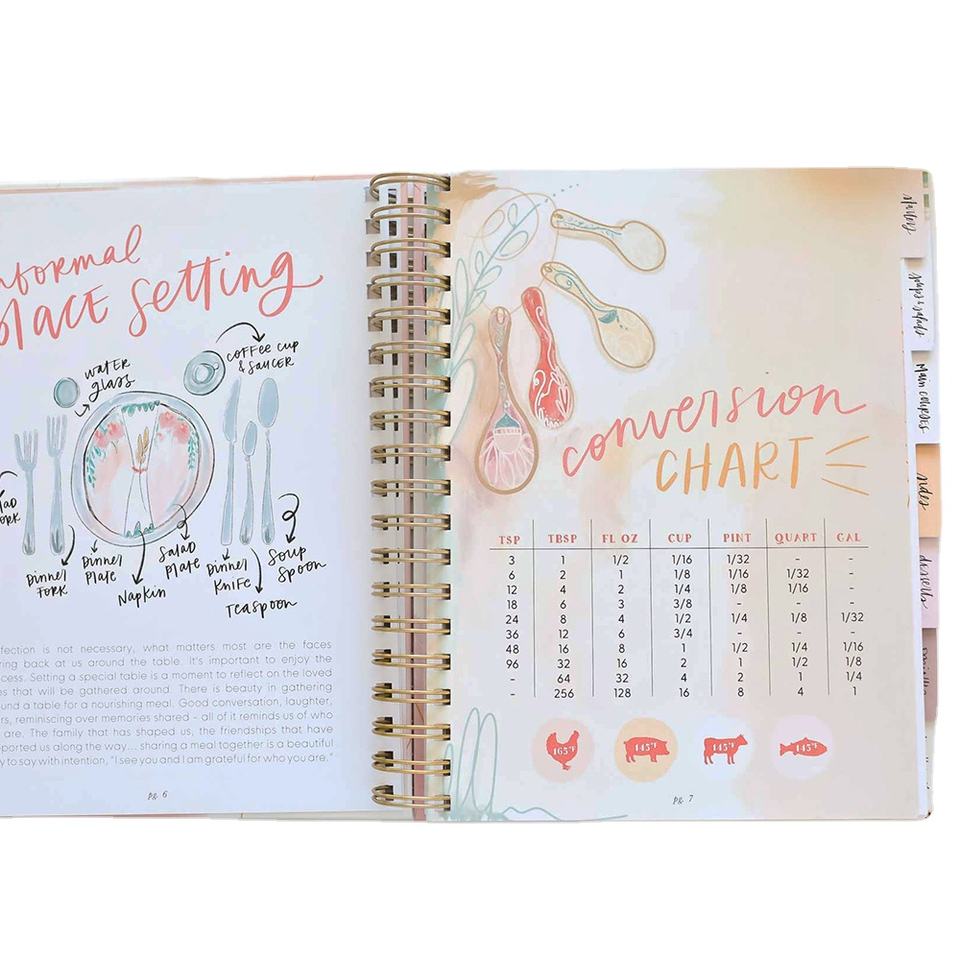 Place Setting
water
glass
coffee cup
& saucer
Dinner
Fork
Dinner
Plate
Napkin
Salad
Plate
Dinner
Knife
Teaspoon
Soup
Spoon
is not necessary, what matters most are the faces
back at us around the table. It's important to enjoy the
Setting a special table is a moment to reflect on the loved
that will be gathered around. There is beauty in gathering
a table for a nourishing meal. Good conversation, laughter,
reminiscing over memories shared - all of it reminds us of who
are. The family that has shaped us, the friendships that have
us along the way... sharing a meal together is a beautiful
to say with intention, "I see you and I am grateful for who you are."
pg. 6
conversion
CHART
TSP TBSP FL OZ CUP PINT QUART GAL
3 1 1/2 1/16 1/32 - -
6 2 1 1/8 1/16 1/32 -
12 4 2 1/4 1/8 1/16 -
18 6 3 3/8 - - -
24 8 4 1/2 1/4 1/8 1/32
36 12 6 3/4 - - -
48 16 8 1 1/2 1/4 1/16
96 32 16 2 1 1/2 1/8
- 64 32 4 2 1 1/4
- 256 128 16 8 4 1
165°F
145°F
145°F
145°F
pg. 7
soups & salads
main courses
sides
desserts